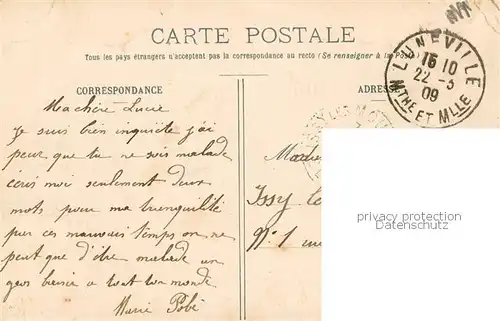 CARTE POSTALE
Tous les pays étrangers n'acceptent pas la correspondance au recto (Se renseigner à la Poste)
CORRESPONDANCE
ADRESSE
LUNEVILLE
15 10
22 - 3
09
MTHE ET MLLE
Ma chère Lucie
Je suis bien inquiète j'ai
peur que tu ne sois malade
écris moi seulement deux
mots pour ma tranquilité
par ces mauvais temps on ne
peut que d'être malade un
gros baiser a tout ton monde
Marie Pobé
Issy le
N° 1
privacy protection
Datenschutz